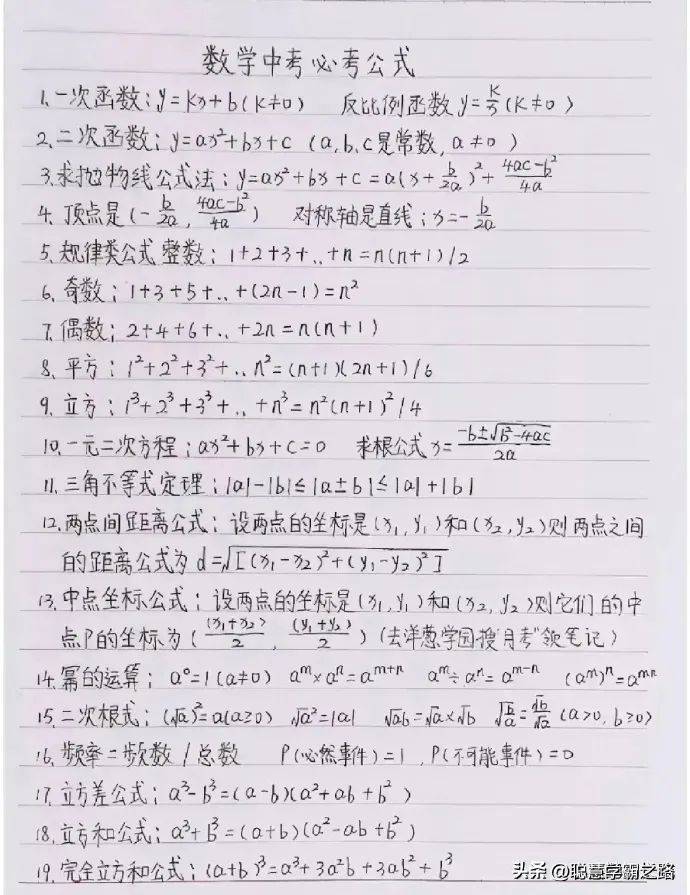 数学中考必考公式
1.一次函数:y=kx+b(k≠0) 反比例函数y=k/x(k≠0)
2.二次函数:y=ax²+bx+c (a,b,c是常数,a≠0)
3.求抛物线公式法:y=ax²+bx+c=a(x+b/2a)²+(4ac-b²)/4a
4.顶点是(-b/2a,(4ac-b²)/4a) 对称轴是直线:x=-b/2a
5.规律类公式 整数:1+2+3+..+n=n(n+1)/2
6.奇数:1+3+5+..+(2n-1)=n²
7.偶数:2+4+6+..+2n=n(n+1)
8.平方:1²+2²+3²+..n²=(n+1)(2n+1)/6
9.立方:1³+2³+3³+..+n³=n²(n+1)²/4
10.一元二次方程:ax²+bx+c=0 求根公式x=(-b±√b²-4ac)/2a
11.三角不等式定理:|a|-|b|≤|a±b|≤|a|+|b|
12.两点间距离公式:设两点的坐标是(x₁,y₁)和(x₂,y₂)则两点之间
的距离公式为d=√[(x₁-x₂)²+(y₁-y₂)²]
13.中点坐标公式:设两点的坐标是(x₁,y₁)和(x₂,y₂)则它们的中
点P的坐标为((x₁+x₂)/2,(y₁+y₂)/2)(去洋葱学园搜"月考"领笔记)
14.幂的运算:a⁰=1(a≠0) aᵐ×aⁿ=aᵐ⁺ⁿ aᵐ÷aⁿ=aᵐ⁻ⁿ (aᵐ)ⁿ=aᵐⁿ
15.二次根式:(√a)²=a(a≥0) √a²=|a| √ab=√a×√b √b/a=√b/√a(a>0,b≥0)
16.频率=频数/总数 P(必然事件)=1,P(不可能事件)=0
17.立方差公式:a³-b³=(a-b)(a²+ab+b²)
18.立方和公式:a³+b³=(a+b)(a²-ab+b²)
19.完全立方和公式:(a+b)³=a³+3a²b+3ab²+b³
头条@聪慧学霸之路